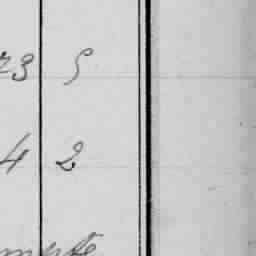 23 5
4 2